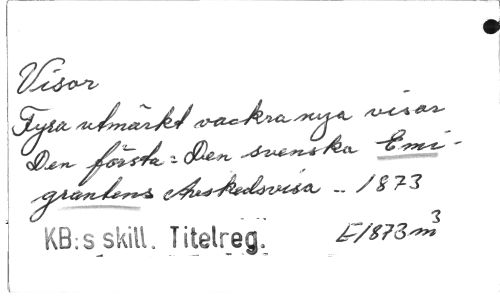 Visor
Fyra utmärkt vackra nya visor
Den första: Den svenska Emi-
grantens Avskedsvisa .. 1873
KB:s skill. Titelreg. E1873m³